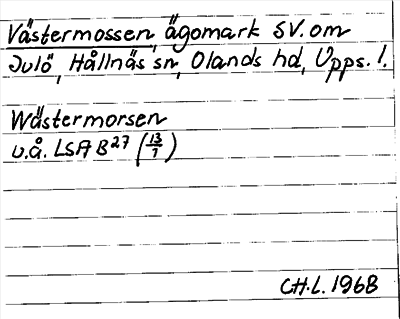 Västermossen, ägomark SV. om
Julö, Hållnäs sn, Olands hd, Upps. l.
Wästermorsen
u.å. LSA B27 (13/7)
CH.L. 1968